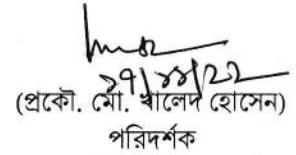 ২৭/১১/২২
(প্রকৌ. মো. খালেদ হোসেন)
পরিদর্শক